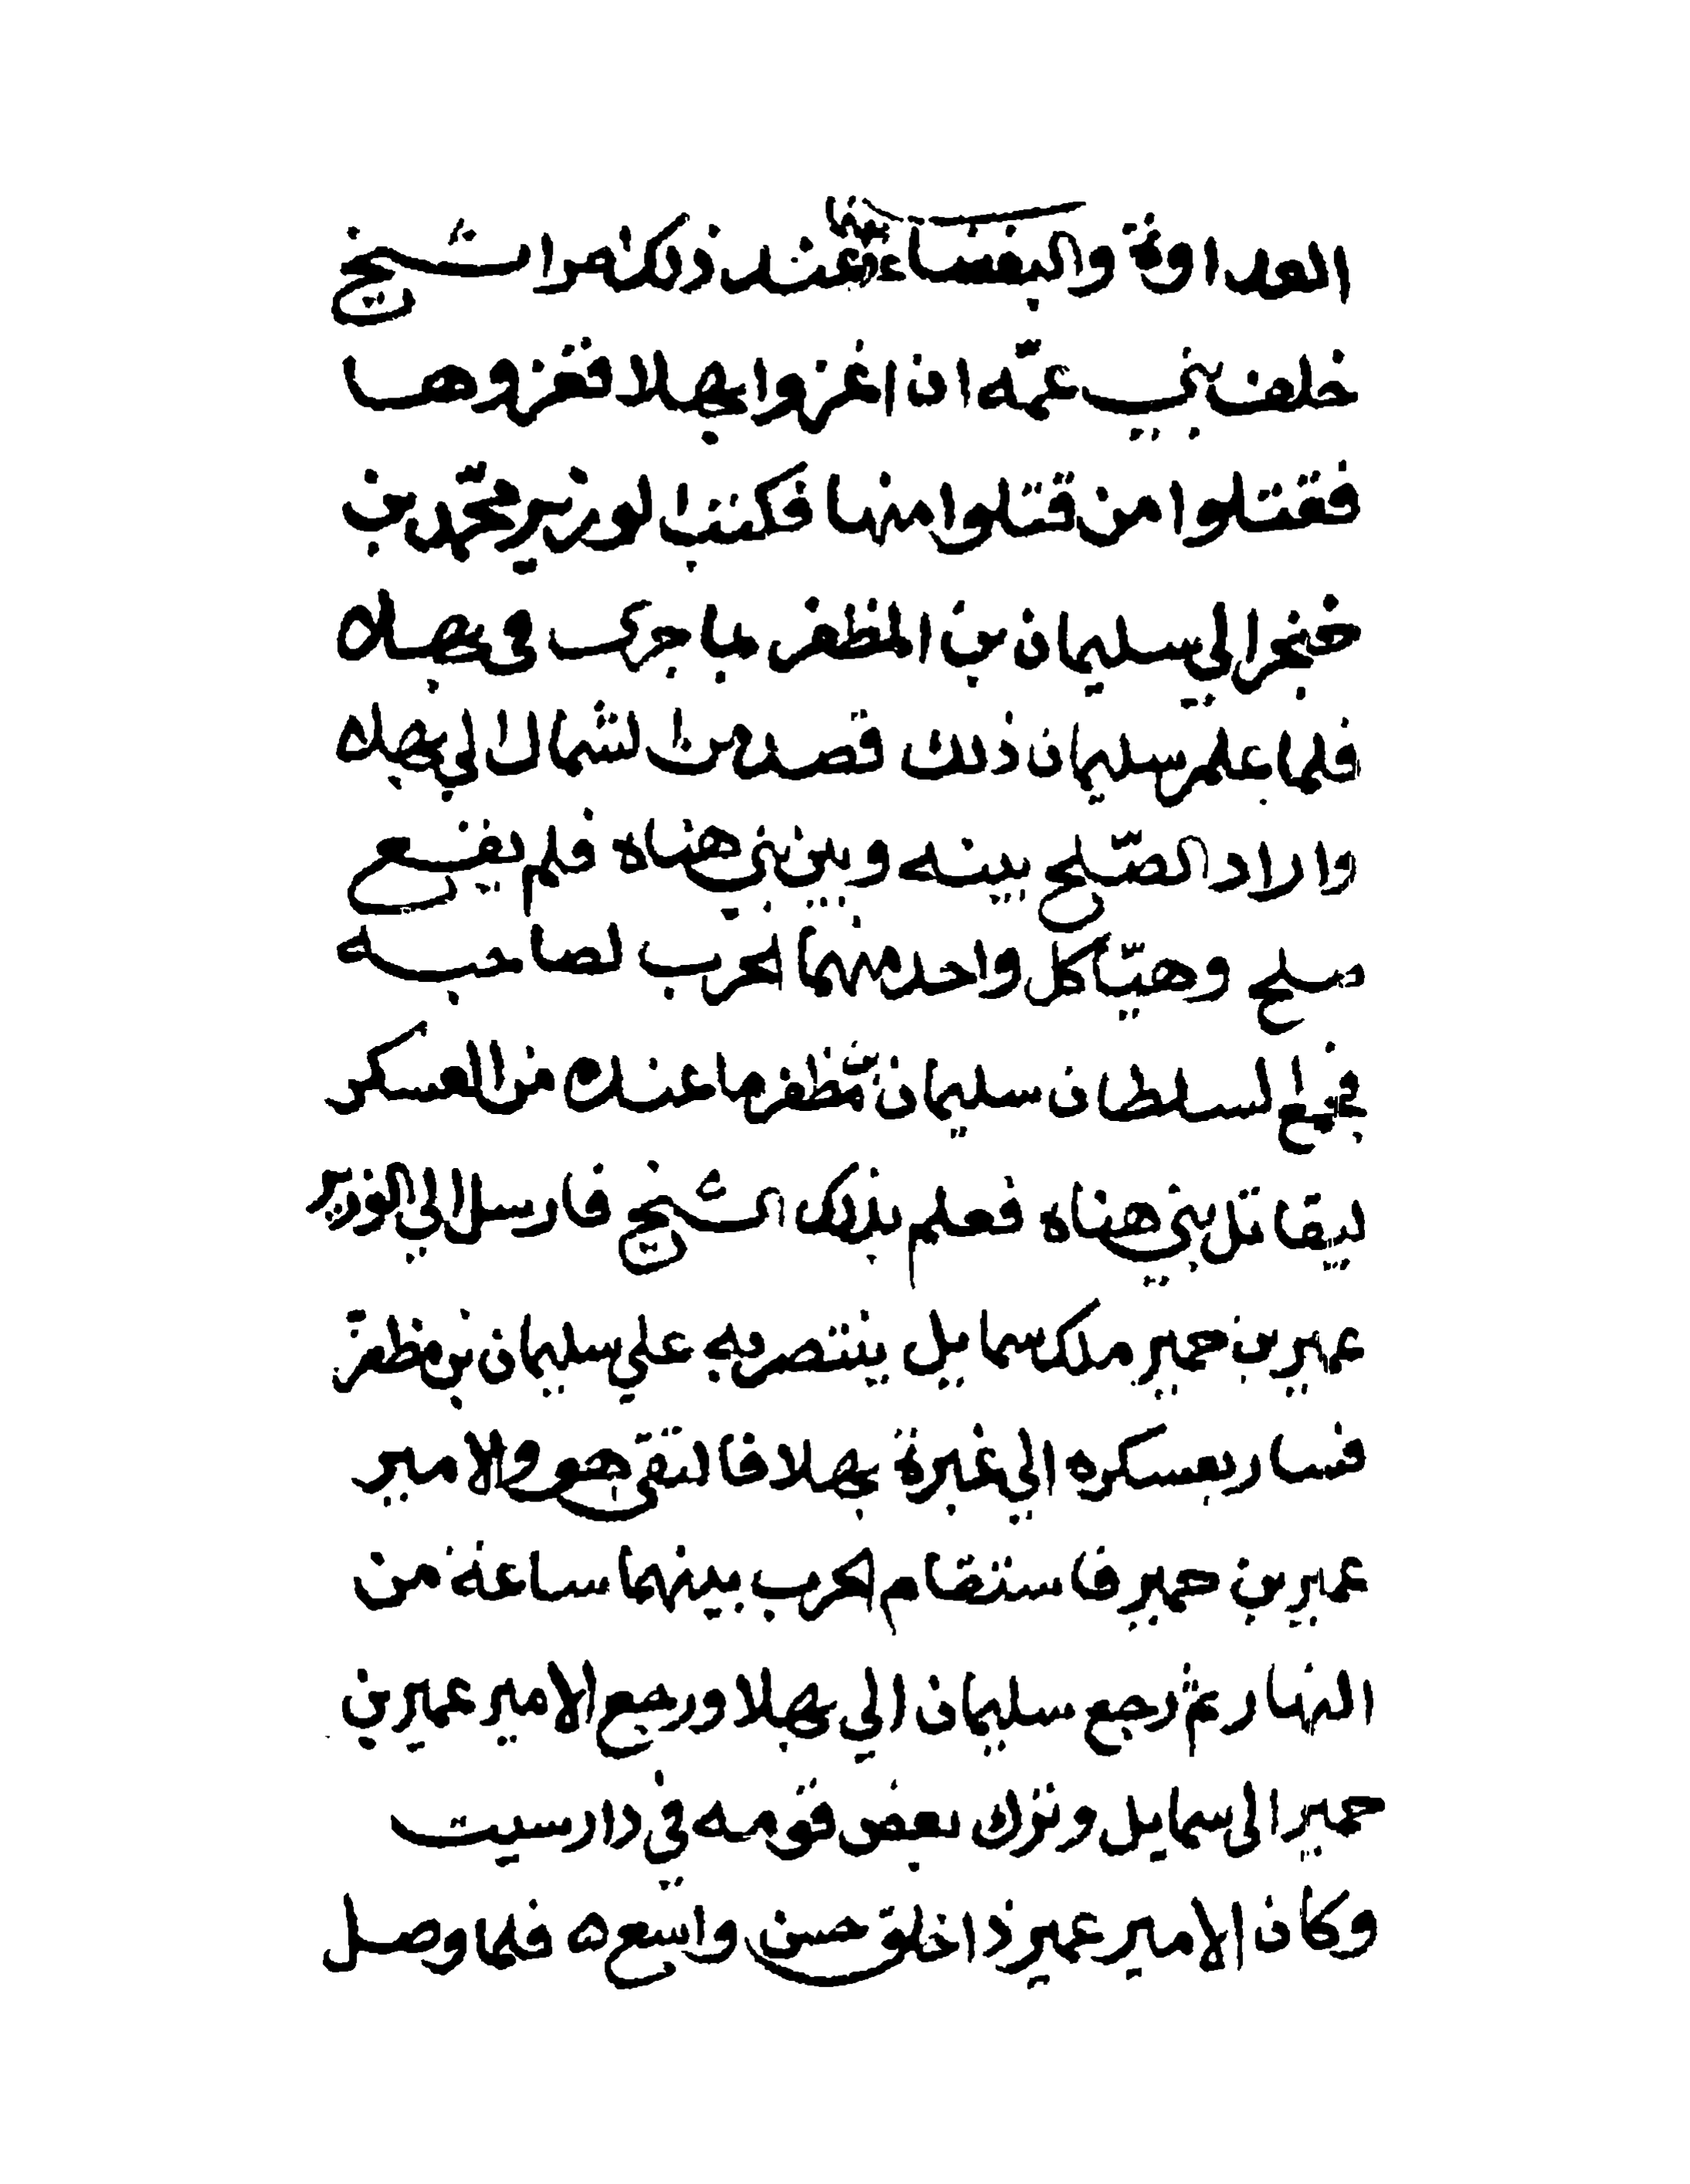 العداوة والبغضاء بينهما فعند ذلك امر الشيخ
خلف بني عمّه ان اغزوا بهلا فغزوهـا
فقتلوا من قتلوا منها فكتب الوزير محمّد بن
خنجر الي سليمان بن المظفر بما جرى في بهلاه
فلما علم سليمان ذلك قصد من الشمال الي بهلاه
واراد الصّلح بينه وبين بني هناه فلم يقـع
صلح وهيّا كل واحد منهما الحرب لصاحبـه
فجمع السلطان سليمان بن مظفر ما عنده من العسكر
ليقاتل بني هناه فعلم بذلك الشيخ فارسل الي الوزير
عمير بن حمير ملك سمايل ينتصر به علي سليمان بن مظفر
فسار بعسكره الي غبرة بهلا فالتقي هو والامير
عمير بن حمير فاستقام الحرب بينهما ساعة من
النهار ثم رجع سليمان الي بهلا ورجع الامير عمير بن
حمير الى سمايل وترك بعض قومه في دار سيت
وكان الامير عمير ذا خلق حسن واسع ه فلما وصل